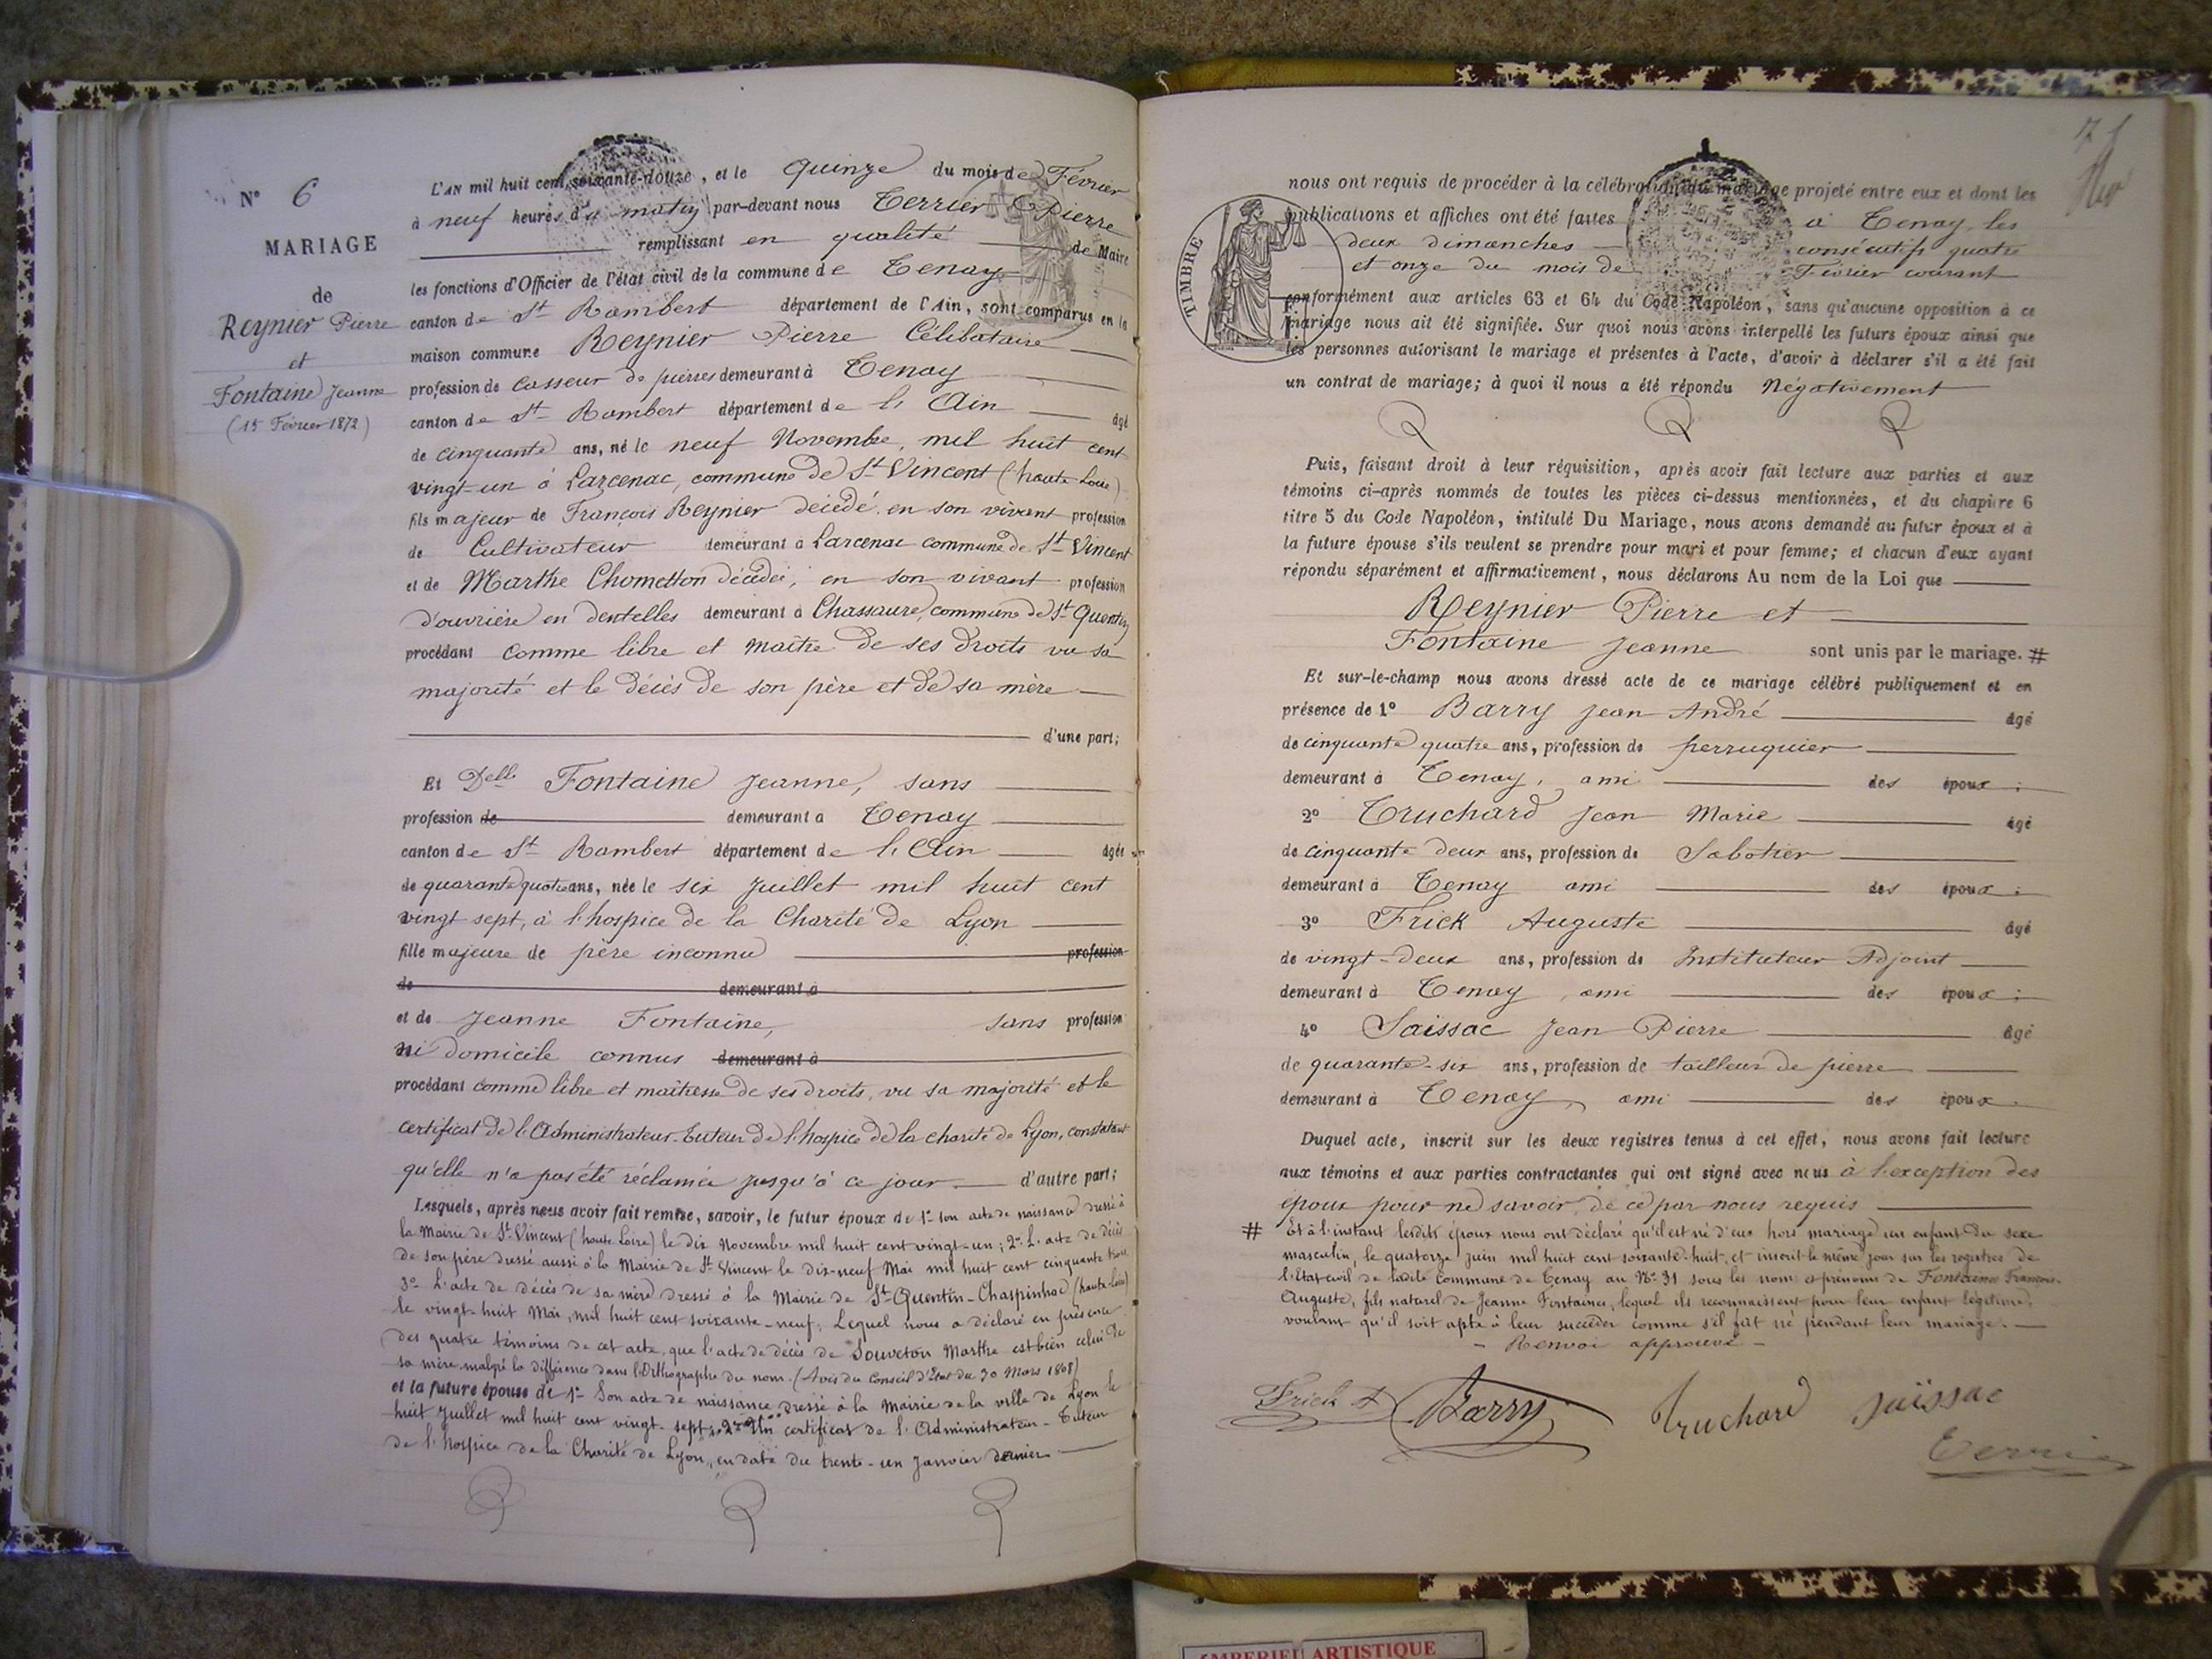 N° 6
MARIAGE
de
Reynier Pierre
et
Fontaine Jeanne
(15 Février 1872)
L'AN mil huit cent soixante-douze, et le quinze du mois de Février
à neuf heures du matin par-devant nous Terrier Pierre
remplissant en qualité de Maire
les fonctions d'Officier de l'état civil de la commune de Tenay
canton de St Rambert département de l'Ain, sont comparus en la
maison commune Reynier Pierre Célibataire
profession de casseur de pierres demeurant à Tenay
canton de St Rambert département de l'Ain âgé
de cinquante ans, né le neuf Novembre, mil huit cent
vingt-un à Larcenac, commune de St Vincent (haute Loire)
fils majeur de François Reynier décédé, en son vivant profession
de Cultivateur demeurant à Larcenac commune de St Vincent
et de Marthe Chometton décédée, en son vivant profession
d'ouvrière en dentelles demeurant à Chassaure, commune de St Quentin
procédant comme libre et maître de ses droits vu sa
majorité et le décès de son père et de sa mère
d'une part;
Et Delle Fontaine Jeanne, sans
profession de demeurant à Tenay
canton de St Rambert département de l'Ain âgée
de quarante quatre ans, née le six Juillet mil huit cent
vingt sept, à l'hospice de la Charité de Lyon
fille majeure de père inconnu profession
de demeurant à
et de Jeanne Fontaine, sans profession
ni domicile connus demeurant à
procédant comme libre et maîtresse de ses droits, vu sa majorité et le
certificat de l'Administrateur-Tuteur de l'hospice de la charité de Lyon, constatant
qu'elle n'a pas été réclamée jusqu'à ce jour d'autre part;
Lesquels, après nous avoir fait remise, savoir, le futur époux de 1° son acte de naissance dressé à
la Mairie de St Vincent (haute Loire) le dix Novembre mil huit cent vingt-un; 2° L'acte de décès
de son père dressé aussi à la Mairie de St Vincent le dix-neuf Mai mil huit cent cinquante trois
3° L'acte de décès de sa mère dressé à la Mairie de St Quentin-Chaspinhac (haute-Loire)
le vingt-huit Mai, mil huit cent soixante-neuf; Lequel nous a déclaré en présence
des quatre témoins de cet acte, que l'acte de décès de Souveton Marthe est bien celui de
sa mère malgré la différence dans l'Orthographe du nom. (Avis du Conseil d'Etat du 30 Mars 1808)
et la future épouse de 1° Son acte de naissance dressé à la Mairie de la ville de Lyon le
huit Juillet mil huit cent vingt-sept; 2° Un certificat de l'Administrateur-Tuteur
de l'hospice de la Charité de Lyon, en date du trente-un Janvier dernier
nous ont requis de procéder à la célébration du mariage projeté entre eux et dont les
publications et affiches ont été faites à Tenay, les
deux dimanches consécutifs quatre
et onze du mois de Février courant
conformément aux articles 63 et 64 du Code Napoléon, sans qu'aucune opposition à ce
mariage nous ait été signifiée. Sur quoi nous avons interpellé les futurs époux ainsi que
les personnes autorisant le mariage et présentes à l'acte, d'avoir à déclarer s'il a été fait
un contrat de mariage; à quoi il nous a été répondu Négativement
TIMBRE
Puis, faisant droit à leur réquisition, après avoir fait lecture aux parties et aux
témoins ci-après nommés de toutes les pièces ci-dessus mentionnées, et du chapitre 6
titre 5 du Code Napoléon, intitulé Du Mariage, nous avons demandé au futur époux et à
la future épouse s'ils veulent se prendre pour mari et pour femme; et chacun d'eux ayant
répondu séparément et affirmativement, nous déclarons Au nom de la Loi que
Reynier Pierre et
Fontaine Jeanne sont unis par le mariage. #
Et sur-le-champ nous avons dressé acte de ce mariage célébré publiquement et en
présence de 1° Barry Jean André âgé
de cinquante quatre ans, profession de perruquier
demeurant à Tenay, ami des époux;
2° Truchard Jean Marie âgé
de cinquante deux ans, profession de Sabotier
demeurant à Tenay ami des époux;
3° Frick Auguste âgé
de vingt-deux ans, profession de Instituteur Adjoint
demeurant à Tenay, ami des époux;
4° Saissac Jean Pierre âgé
de quarante-six ans, profession de tailleur de pierre
demeurant à Tenay, ami des époux.
Duquel acte, inscrit sur les deux registres tenus à cet effet, nous avons fait lecture
aux témoins et aux parties contractantes qui ont signé avec nous à l'exception des
époux pour ne savoir, de ce par nous requis
# Et à l'instant lesdits époux nous ont déclaré qu'il est né d'eux hors mariage un enfant du sexe
masculin, le quatorze Juin mil huit cent soixante-huit, et inscrit le même jour sur les registres de
l'Etat civil de ladite Commune de Tenay au N° 31 sous les nom et prénoms de Fontaine François-
Auguste, fils naturel de Jeanne Fontaine, lequel ils reconnaissent pour leur enfant légitime,
voulant qu'il soit apte à leur succéder comme s'il fût né pendant leur mariage.
- Renvoi approuvé -
Frick A Barry Truchard Saïssac
Terrier
ARTISTIQUE